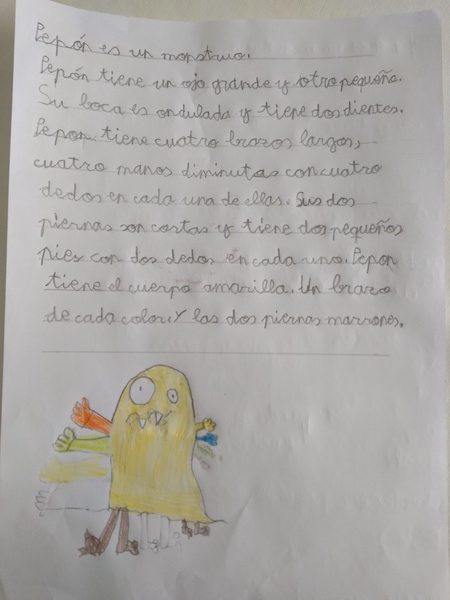 Pepón es un monstruo.
Pepón tiene un ojo grande y otro pequeño.
Su boca es ondulada y tiene dos dientes.
Pepon tiene cuatro brazos largos,
cuatro manos diminutas con cuatro
dedos en cada una de ellas. Sus dos
piernas son costas y tiene dos pequeños
pies con dos dedos en cada uno. Pepon
tiene el cuerpo amarilla. Un brazo
de cada color. Y las dos piernas marrones.